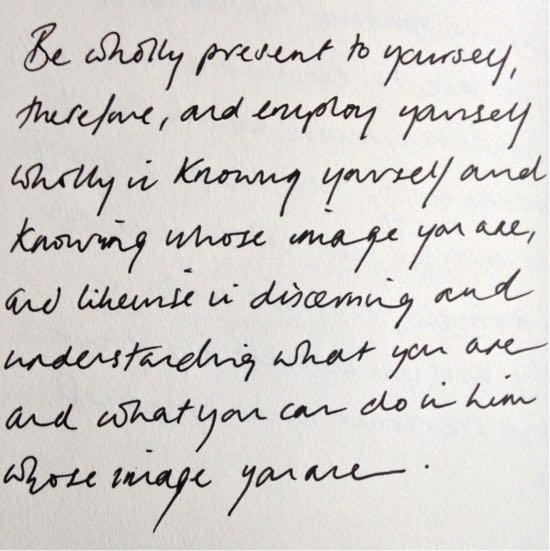 Be wholly present to yourself,
therefore, and employ yourself
wholly in knowing yourself and
knowing whose image you are,
and likewise in discerning and
understanding what you are
and what you can do in him
whose image you are.